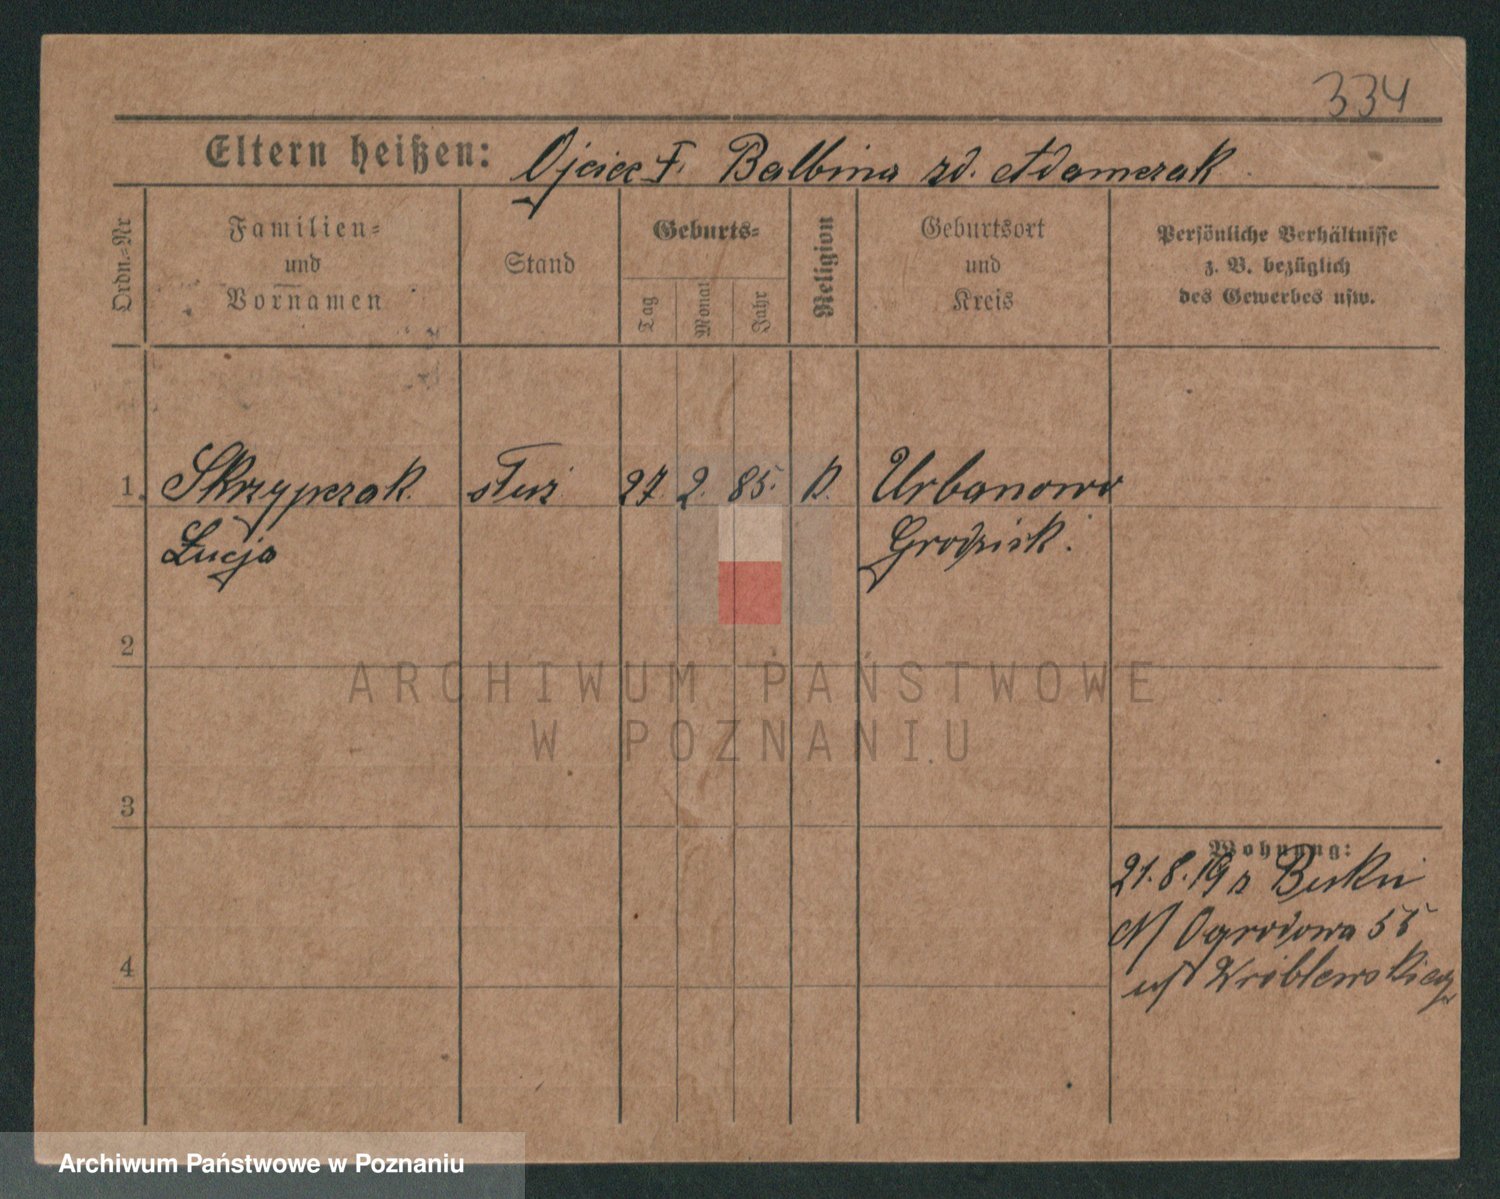 334
Eltern heißen: Ojciec F. Balbina zd. Adamczak
Ordn.-Nr
Familien-
und
Vornamen
Stand
Geburts-
Tag
Monat
Jahr
Religion
Geburtsort
und
Kreis
Persönliche Verhältnisse
z. B. bezüglich
des Gewerbes usw.
1. Skrzypczak służ 27. 2. 85. k. Urbanowo
Łucja Grodzisk.
2
ARCHIWUM PAŃSTWOWE
W POZNANIU
3
Wohnung:
21.8.19 z Buku
Ogrodowa 55
4
Archiwum Państwowe w Poznaniu